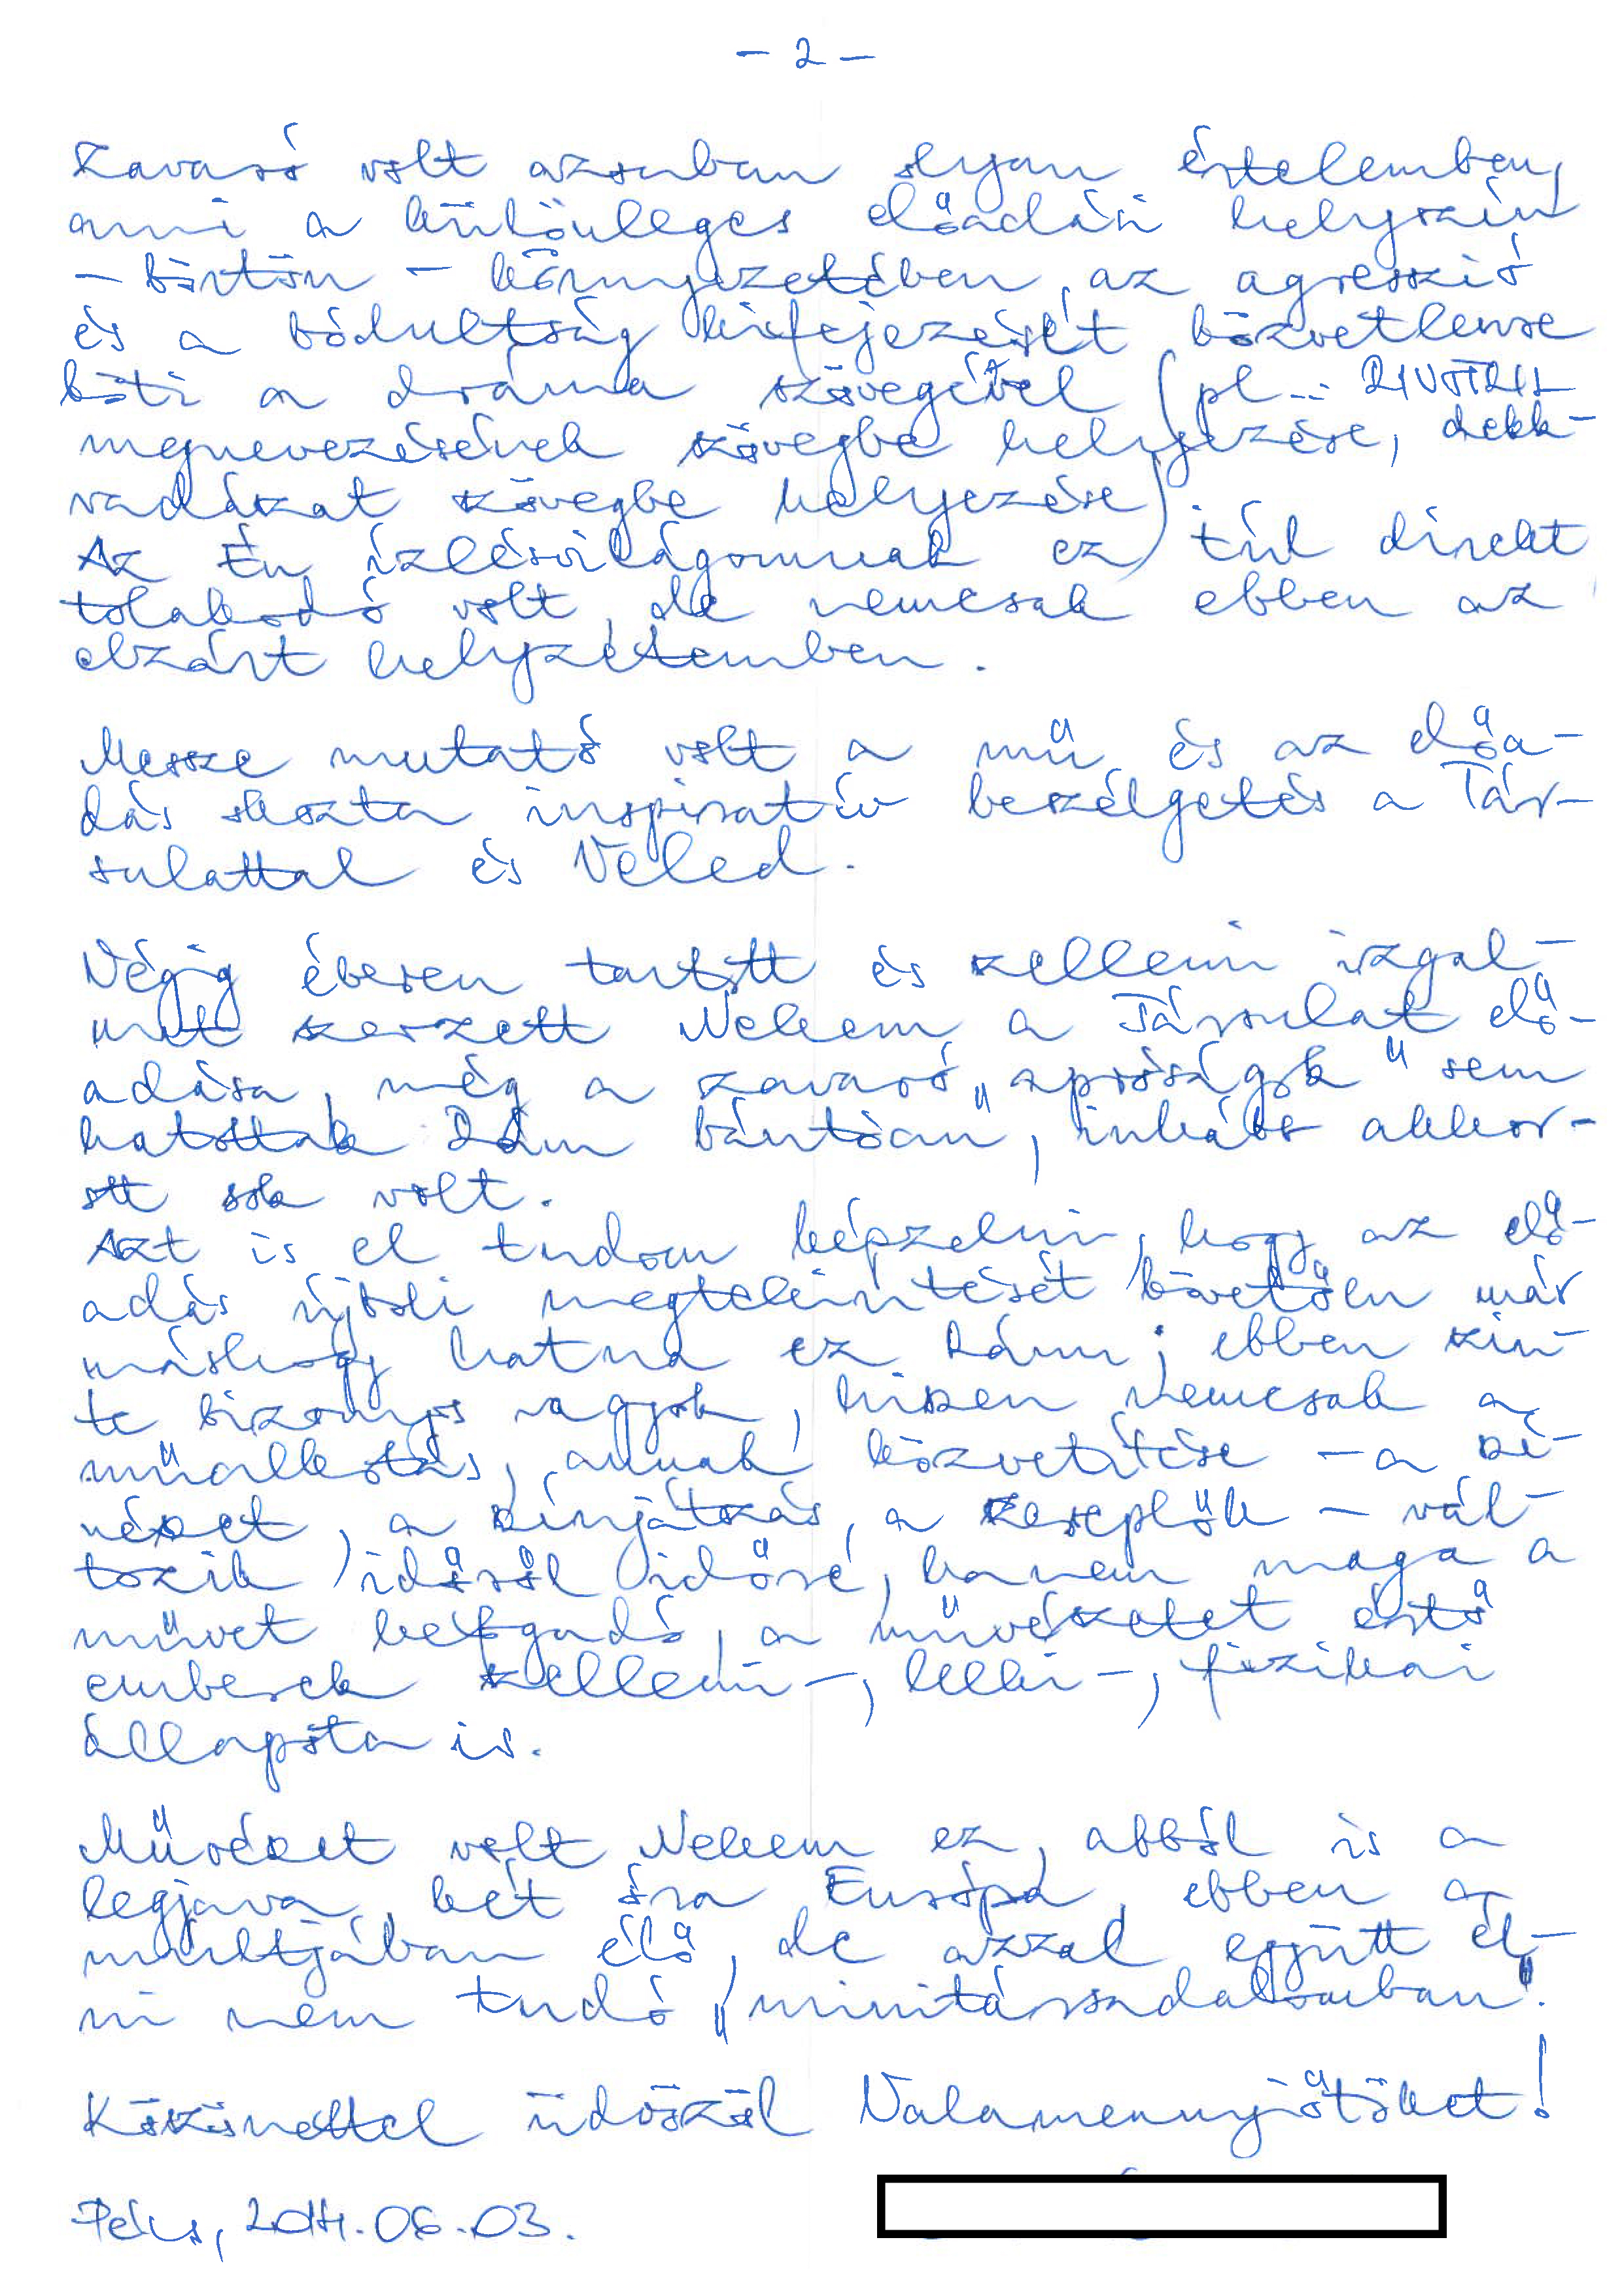 - 2 -
Zavaró volt azonban olyan értelemben,
ami a különleges előadási helyszín
- börtön - környezetében, az agresszió
és a bódultság kifejezését közvetlenre
köti a dráma szövegével (pl.: RIVOTRIL
megnevezésének szövegbe helyezése, dekk-
vadászat szövegbe helyezése).
Az Én ízlésvilágomnak ez túl direkt
tolakodó volt, de nemcsak ebben az
elzárt helyzetemben.
Messze mutató volt a mű és az előa-
dás okozta inspiratív beszélgetés a Tár-
sulattal és Veled.
Végig éberen tartott és szellemi izgal-
mat szerzett Nekem a Társulat elő-
adása, még a zavaró „apróságok" sem
hatottak Rám bántóan, inkább akkor-
ott sok volt.
Azt is el tudom képzelni, hogy az elő-
adás újbóli megtekintését követően már
máshogy hatna ez Rám; ebben szin-
te bizonyos vagyok, hiszen nemcsak a
műalkotás, annak közvetítése - a szí-
nészet, a színjátszás, a szereplők - vál-
tozik időről időre, hanem maga a
művet befogadó, a művészetet értő
emberek szellemi-, lelki-, fizikai
állapota is.
Művészet volt Nekem ez, abból is a
legjava, két óra Európa, ebben a
múltjában élő, de azzal együtt él-
ni nem tudó „minitársadalomban".
Köszönettel üdvözöl Valamennyiőtöket!
Pécs, 2014.06.03.